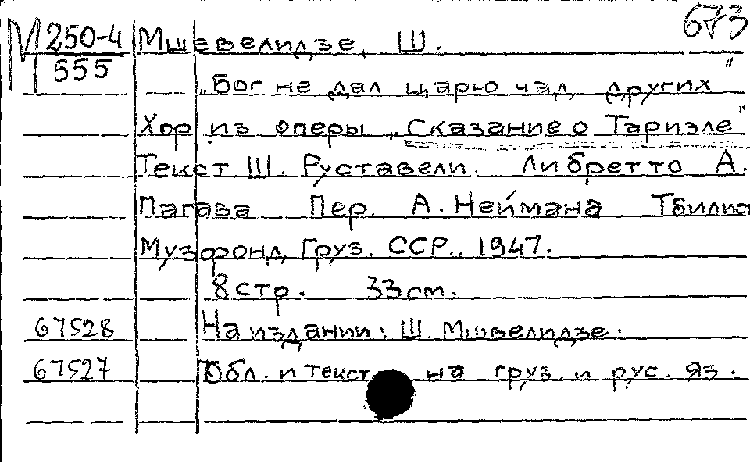 673
М 250-4 Мшвелидзе, Ш.
555
„Бог не дал царю чад других"
Хор из оперы „Сказание о Тариэле"
Текст Ш. Руставели. Либретто А.
Пагава Пер. А. Неймана Тбилис
Музфонд Груз. ССР., 1947.
8 стр. 33 cm.
67528 На издании: Ш. Мшвелидзе.
67527 Обл. и текст на груз. и рус. яз.